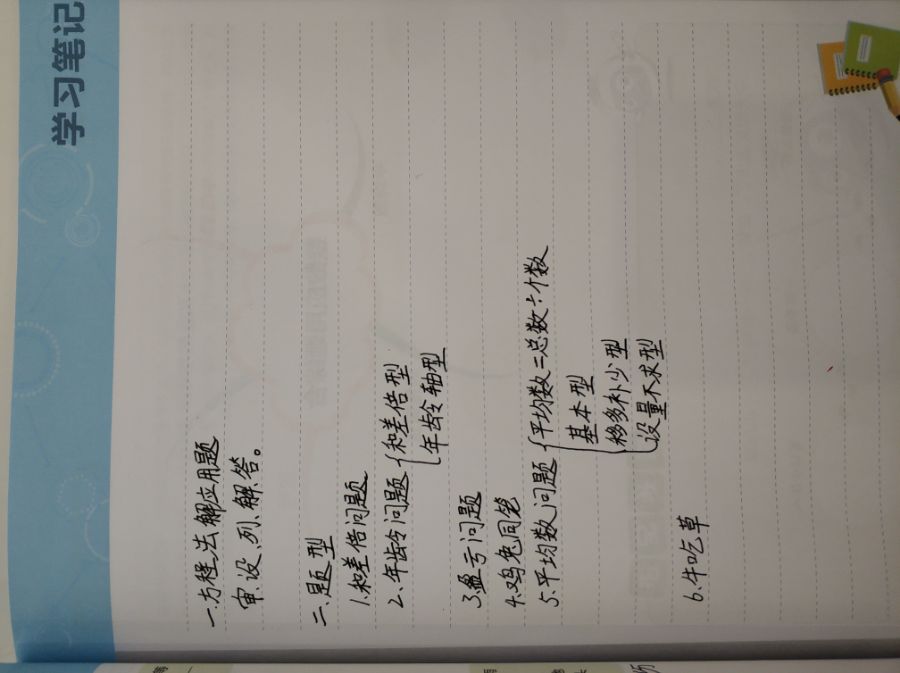 学习笔记
一.方程法解应用题
审、设、列、解、答。
二、题型
1.和差倍问题
2.年龄问题{和差倍型
年龄轴型
3.盈亏问题
4.鸡兔同笼
5.平均数问题{平均数=总数÷个数
基本型
移多补少型
设量不求型
6.牛吃草